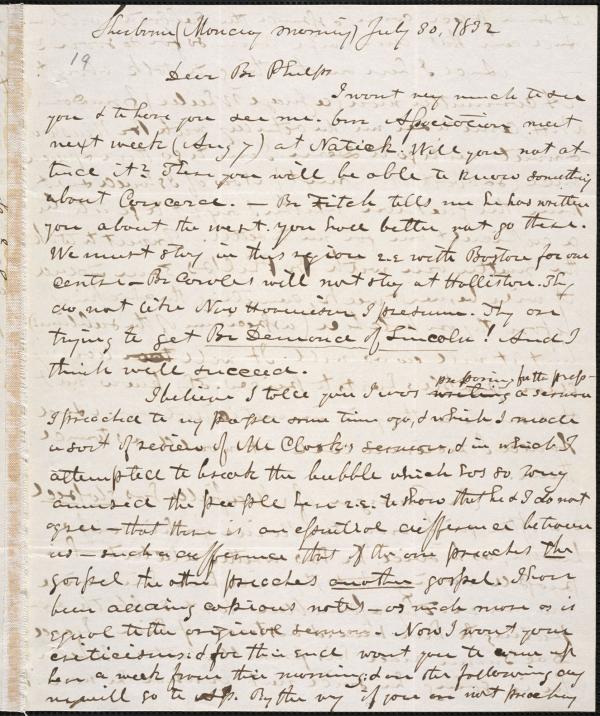 Sherborn (Monday morning) July 30, 1832
19
Dear Br Phelps
I want very much to see
you & to have you see me. Our Association meet
next week (Aug 7) at Natick. Will you not at
tend it? Then you will be able to know something
about Concord. — Br Fitch tells me he has written
you about the west. you had better not go there.
We must stay in this region i.e. with Boston for our
centre — Br will not stay at Holliston. They
do not like New I presume. They are
trying to get Br Demond of Lincoln! And I
think will succeed.
I believe I told you I was preparing for the press
writing a sermon
I preached to my people some time ago, & which I made
a sort of review of Mr Clark's sermon, & in which I
attempted to break the bubble which has so long
amused the people here i.e. to show that he & I do not
agree — that there is an essential difference between
us — such a difference that if the one preaches the
gospel the other preaches another gospel. I have
been adding copious notes — as much more as is
equal to the original sermon. Now I want your
criticisms & for this end want you to come up
here a week from this morning & on the following day
we will go to By the way if you are not preaching